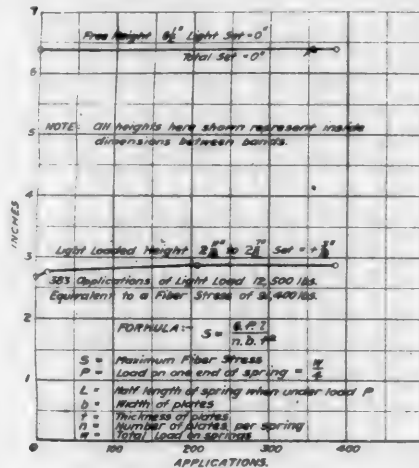 7
Free Height 6½" Light Set = 0"
Total Set = 0"
6
NOTE: All heights here shown represent inside
dimensions between bands.
5
4
INCHES
3
Light Loaded Height to Set = +
383 Applications of Light Load 12,500 lbs.
Equivalent to a Fiber Stress of lbs.
2
FORMULA:- S = 6.P.l / n.b.t²
S = Maximum Fiber Stress
P = Load on one end of spring = W/4
1
L = Half length of spring when under load P
b = Width of plates
t = Thickness of plates
n = Number of plates per spring
w = Total Load on springs
0 100 200 300 400
APPLICATIONS.